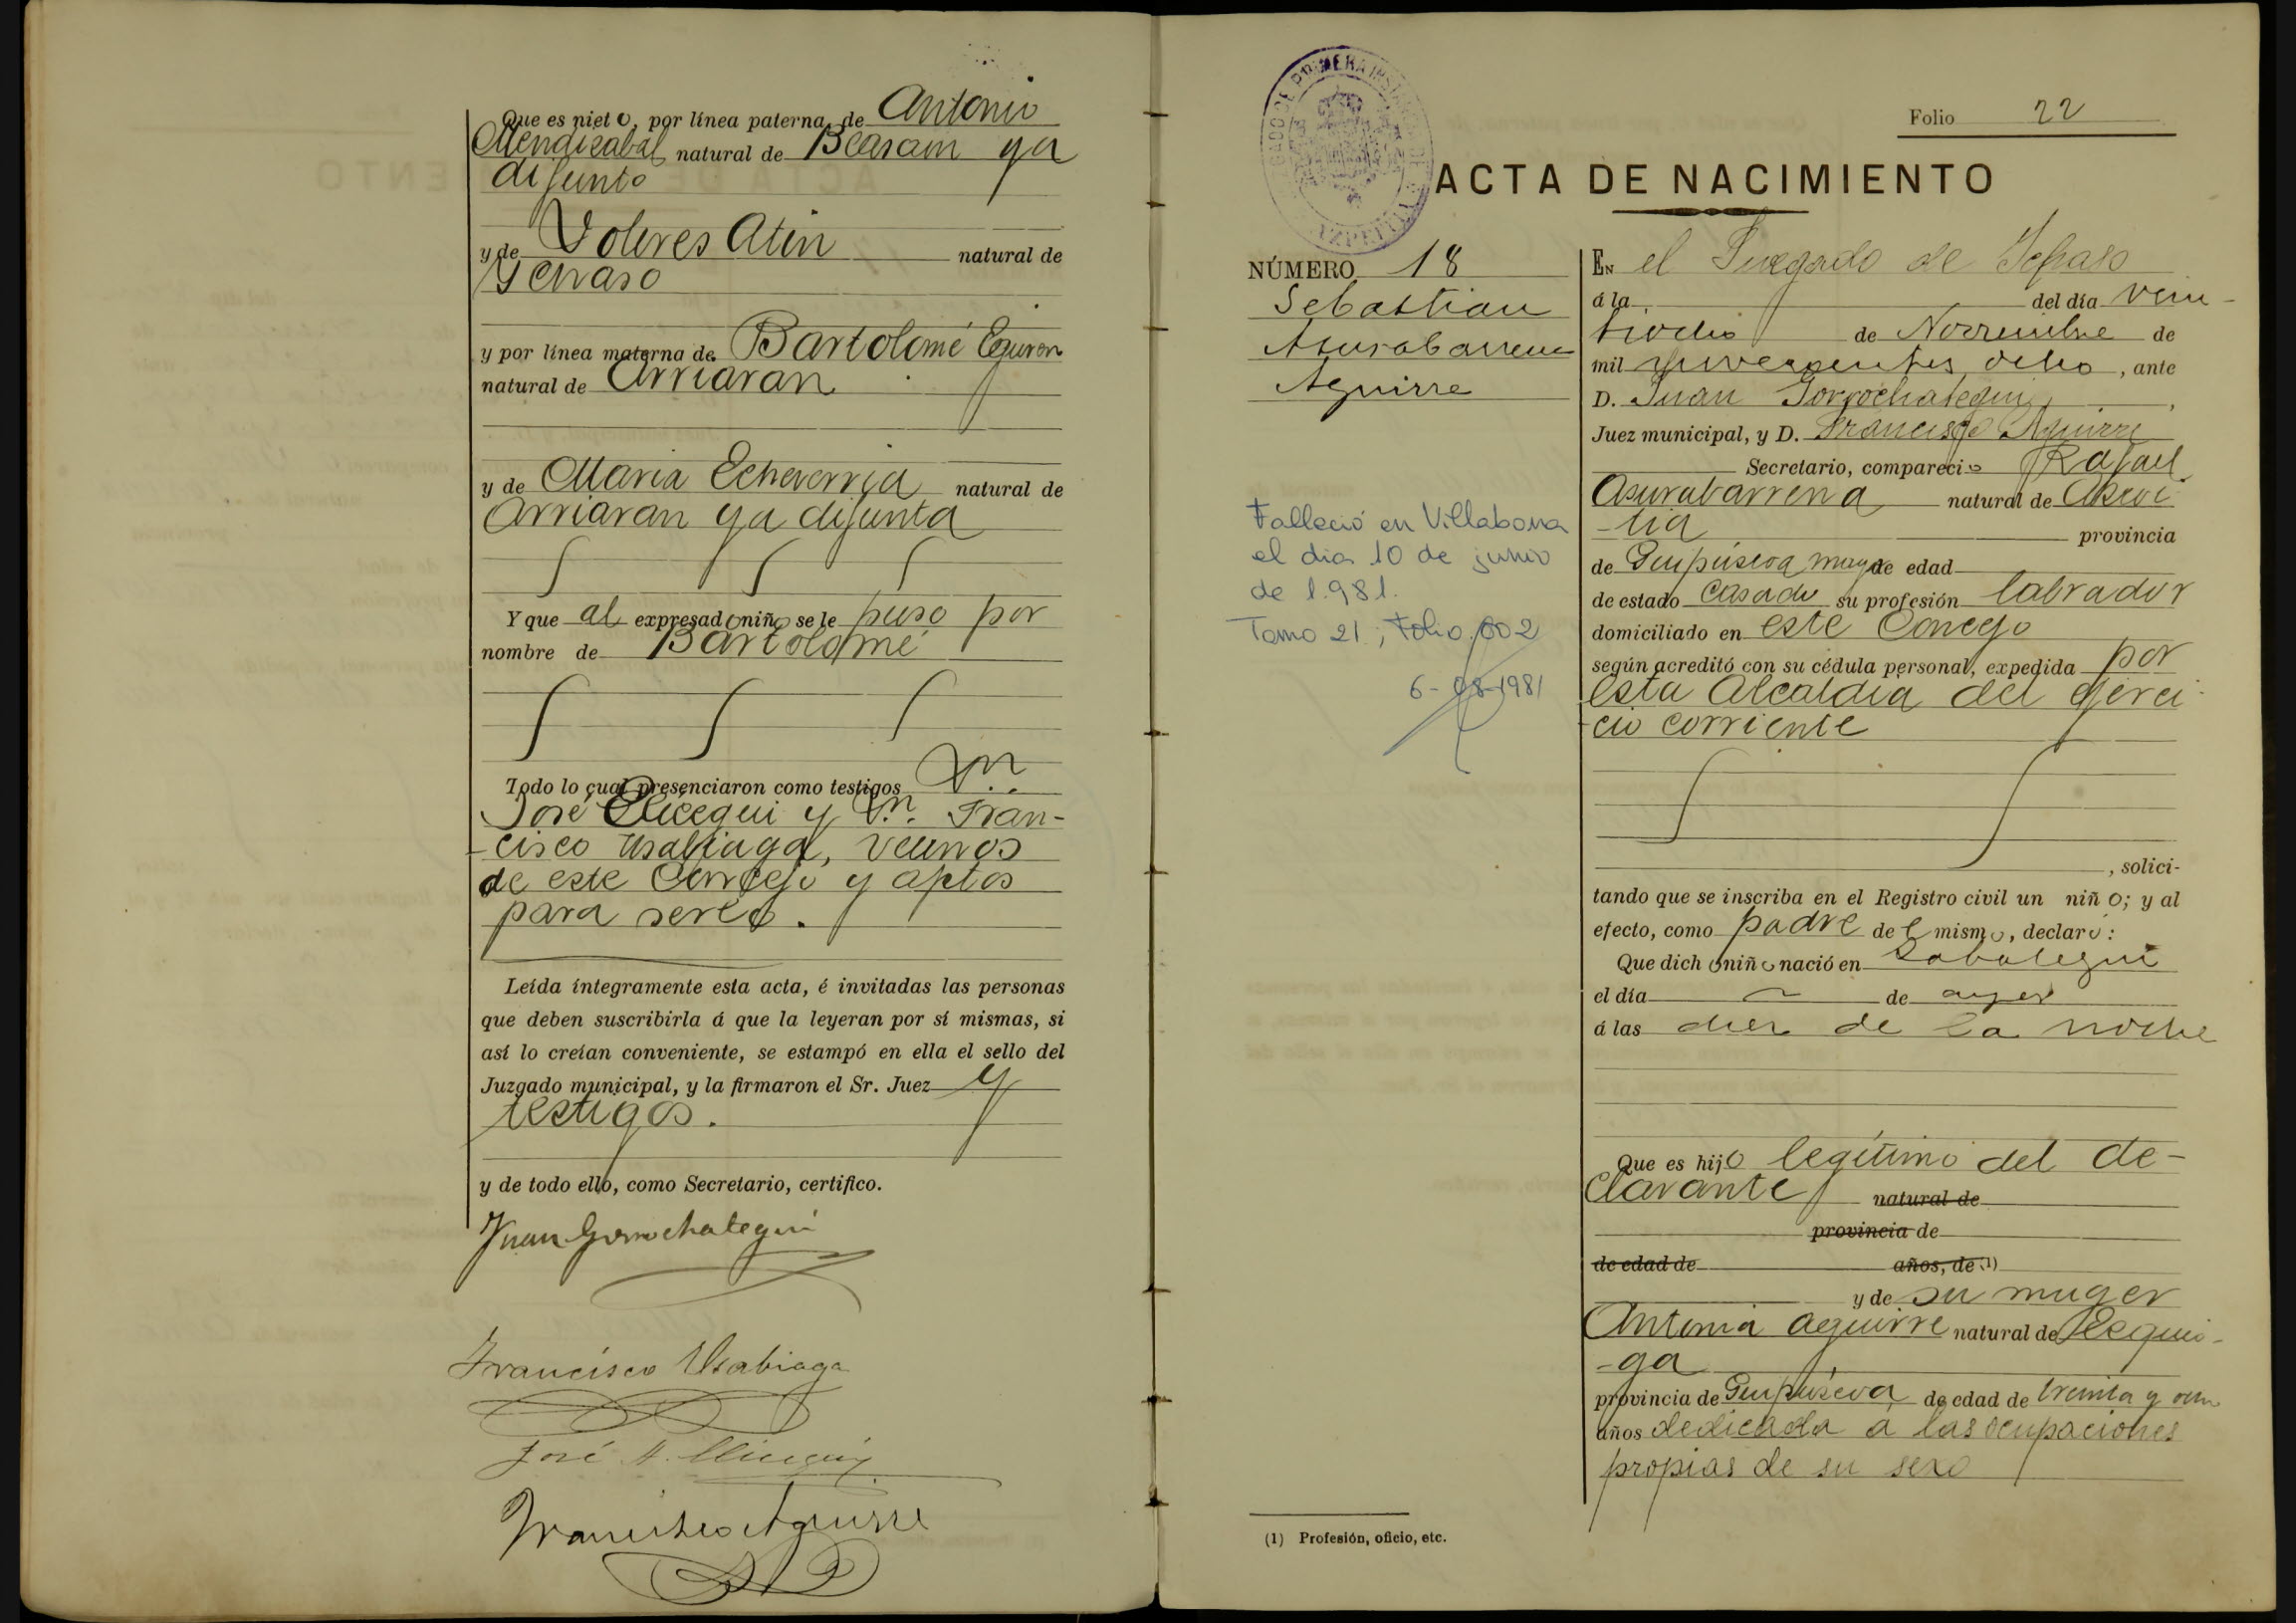 Que es nieto, por línea paterna, de Antonio
Mendizabal natural de Beasain ya
difunto
y de Dolores Atin natural de
Ychaso
y por línea materna de Bartolomé Eguren
natural de Arriaran
y de Maria Echeverria natural de
Arriaran ya difunta
Y que al expresado niño se le puso por
nombre de Bartolomé
Todo lo cual presenciaron como testigos Dn.
José Elicegui y Dn. Fran-
-cisco Usabiaga, vecinos
de este Concejo y aptos
para serlo.
Leída íntegramente esta acta, é invitadas las personas
que deben suscribirla á que la leyeran por sí mismas, si
así lo creían conveniente, se estampó en ella el sello del
Juzgado municipal, y la firmaron el Sr. Juez y
testigos.
y de todo ello, como Secretario, certifico.
Juan Gorrochategui
Francisco Usabiaga
José Elicegui
Francisco Aguirre
Folio 22
ACTA DE NACIMIENTO
NÚMERO 18
Sebastian
Azurabarrena
Aguirre
Falleció en Villabona
el dia 10 de junio
de 1.981.
Tomo 21, Folio 002
6-08-1981
(1) Profesión, oficio, etc.
EN el Juzgado de Ychaso
á la del día vein-
tiocho de Noviembre de
mil novecientos ocho, ante
D. Juan Gorrochategui,
Juez municipal, y D. Francisco Aguirre
Secretario, compareció Rafael
Azurabarrena natural de Azpei-
-tia provincia
de Guipúzcoa mayor de edad
de estado casado su profesión labrador
domiciliado en este Concejo
según acreditó con su cédula personal, expedida por
esta Alcaldia del ejerci-
-cio corriente
, solici-
tando que se inscriba en el Registro civil un niño; y al
efecto, como padre del mismo, declaró:
Que dicho niño nació en Zabalegui
el día de ayer
á las diez de la noche
Que es hijo legítimo del de-
clarante natural de
provincia de
de edad de años, de (1)
y de su muger
Antonia Aguirre natural de Ezquio-
-ga
provincia de Guipúzcoa de edad de treinta y
años dedicada á las ocupaciones
propias de su sexo